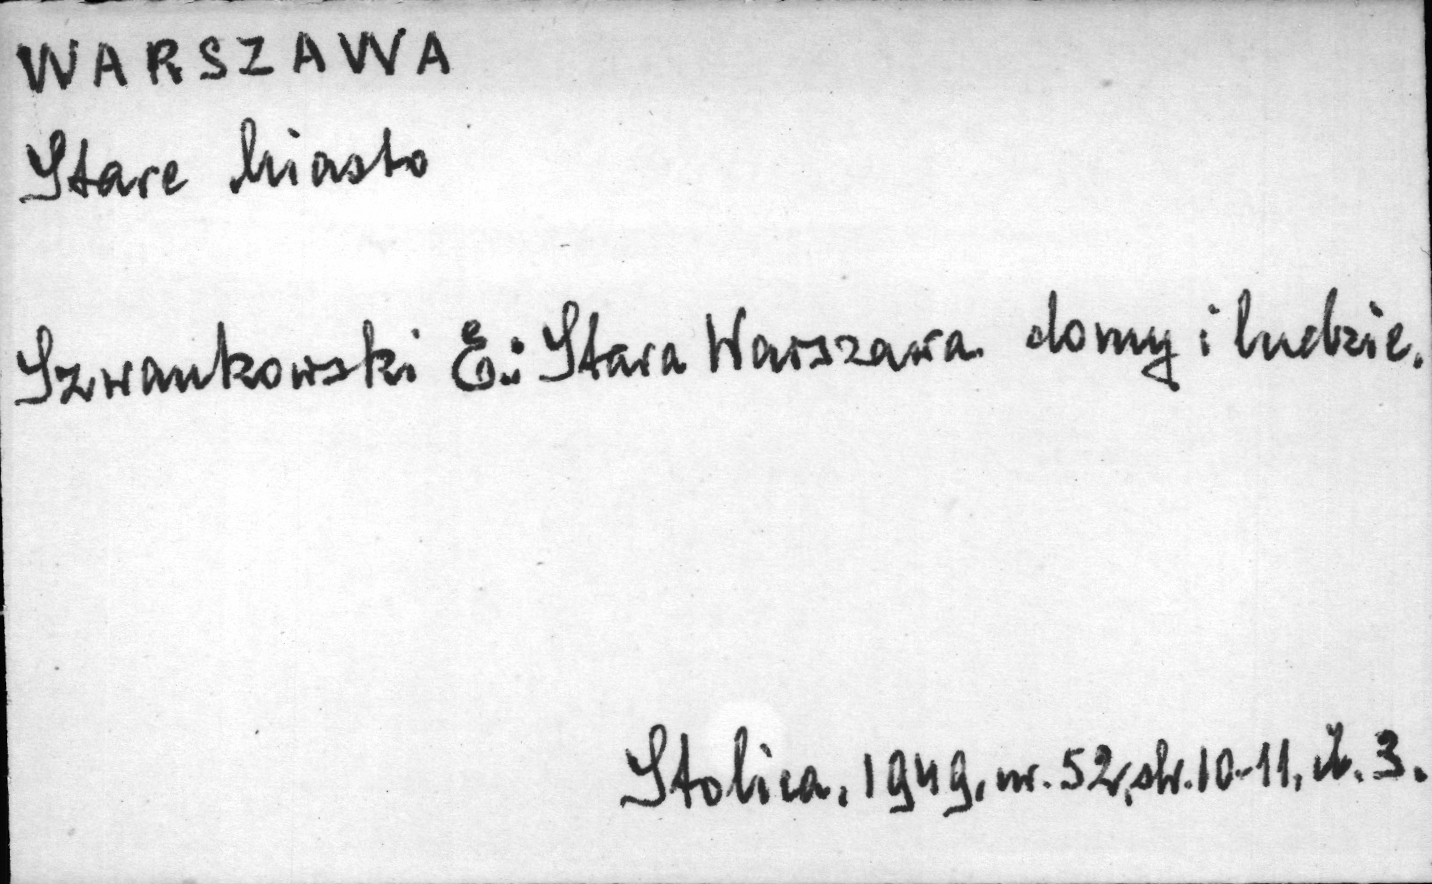 WARSZAWA
Stare Miasto
Szwankowski E.: Stara Warszawa. domy i ludzie.
Stolica. 1949, nr. 52, str. 10-11, il. 3.